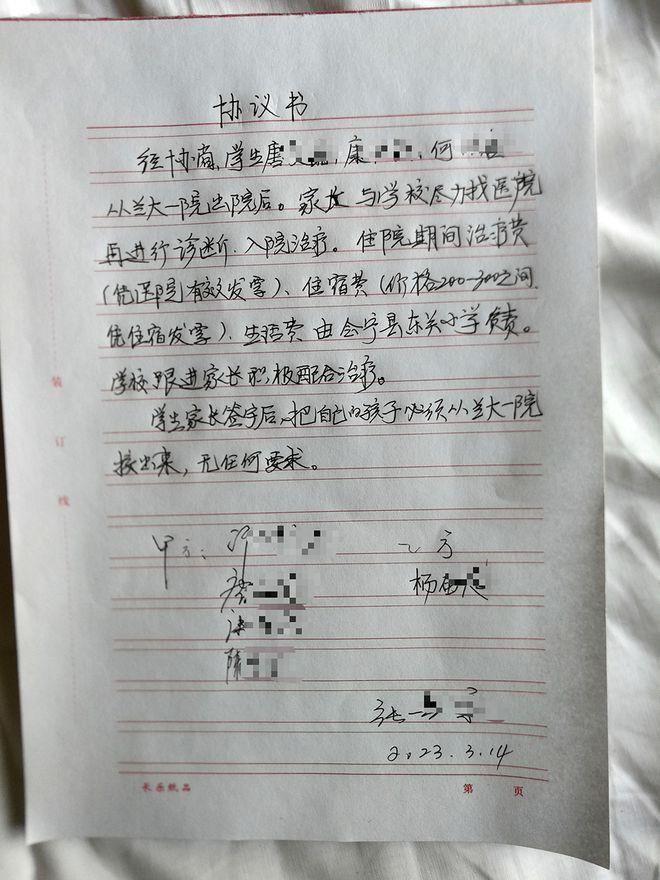 协议书
经协商,学生唐 , 康 , 何
从兰大一院出院后。家长与学校尽力找医院
再进行诊断、入院治疗。住院期间治疗费
(凭医院有效发票)、住宿费(价格200-300之间
凭住宿发票)、生活费由会宁县东关小学负责。
学校跟进家长积极配合治疗。
学生家长签字后,把自己的孩子必须从兰大一院
接出来,无任何要求。
甲方: 乙方
杨
陈
2023.3.14
装
订
线
长乐纸品 第 页